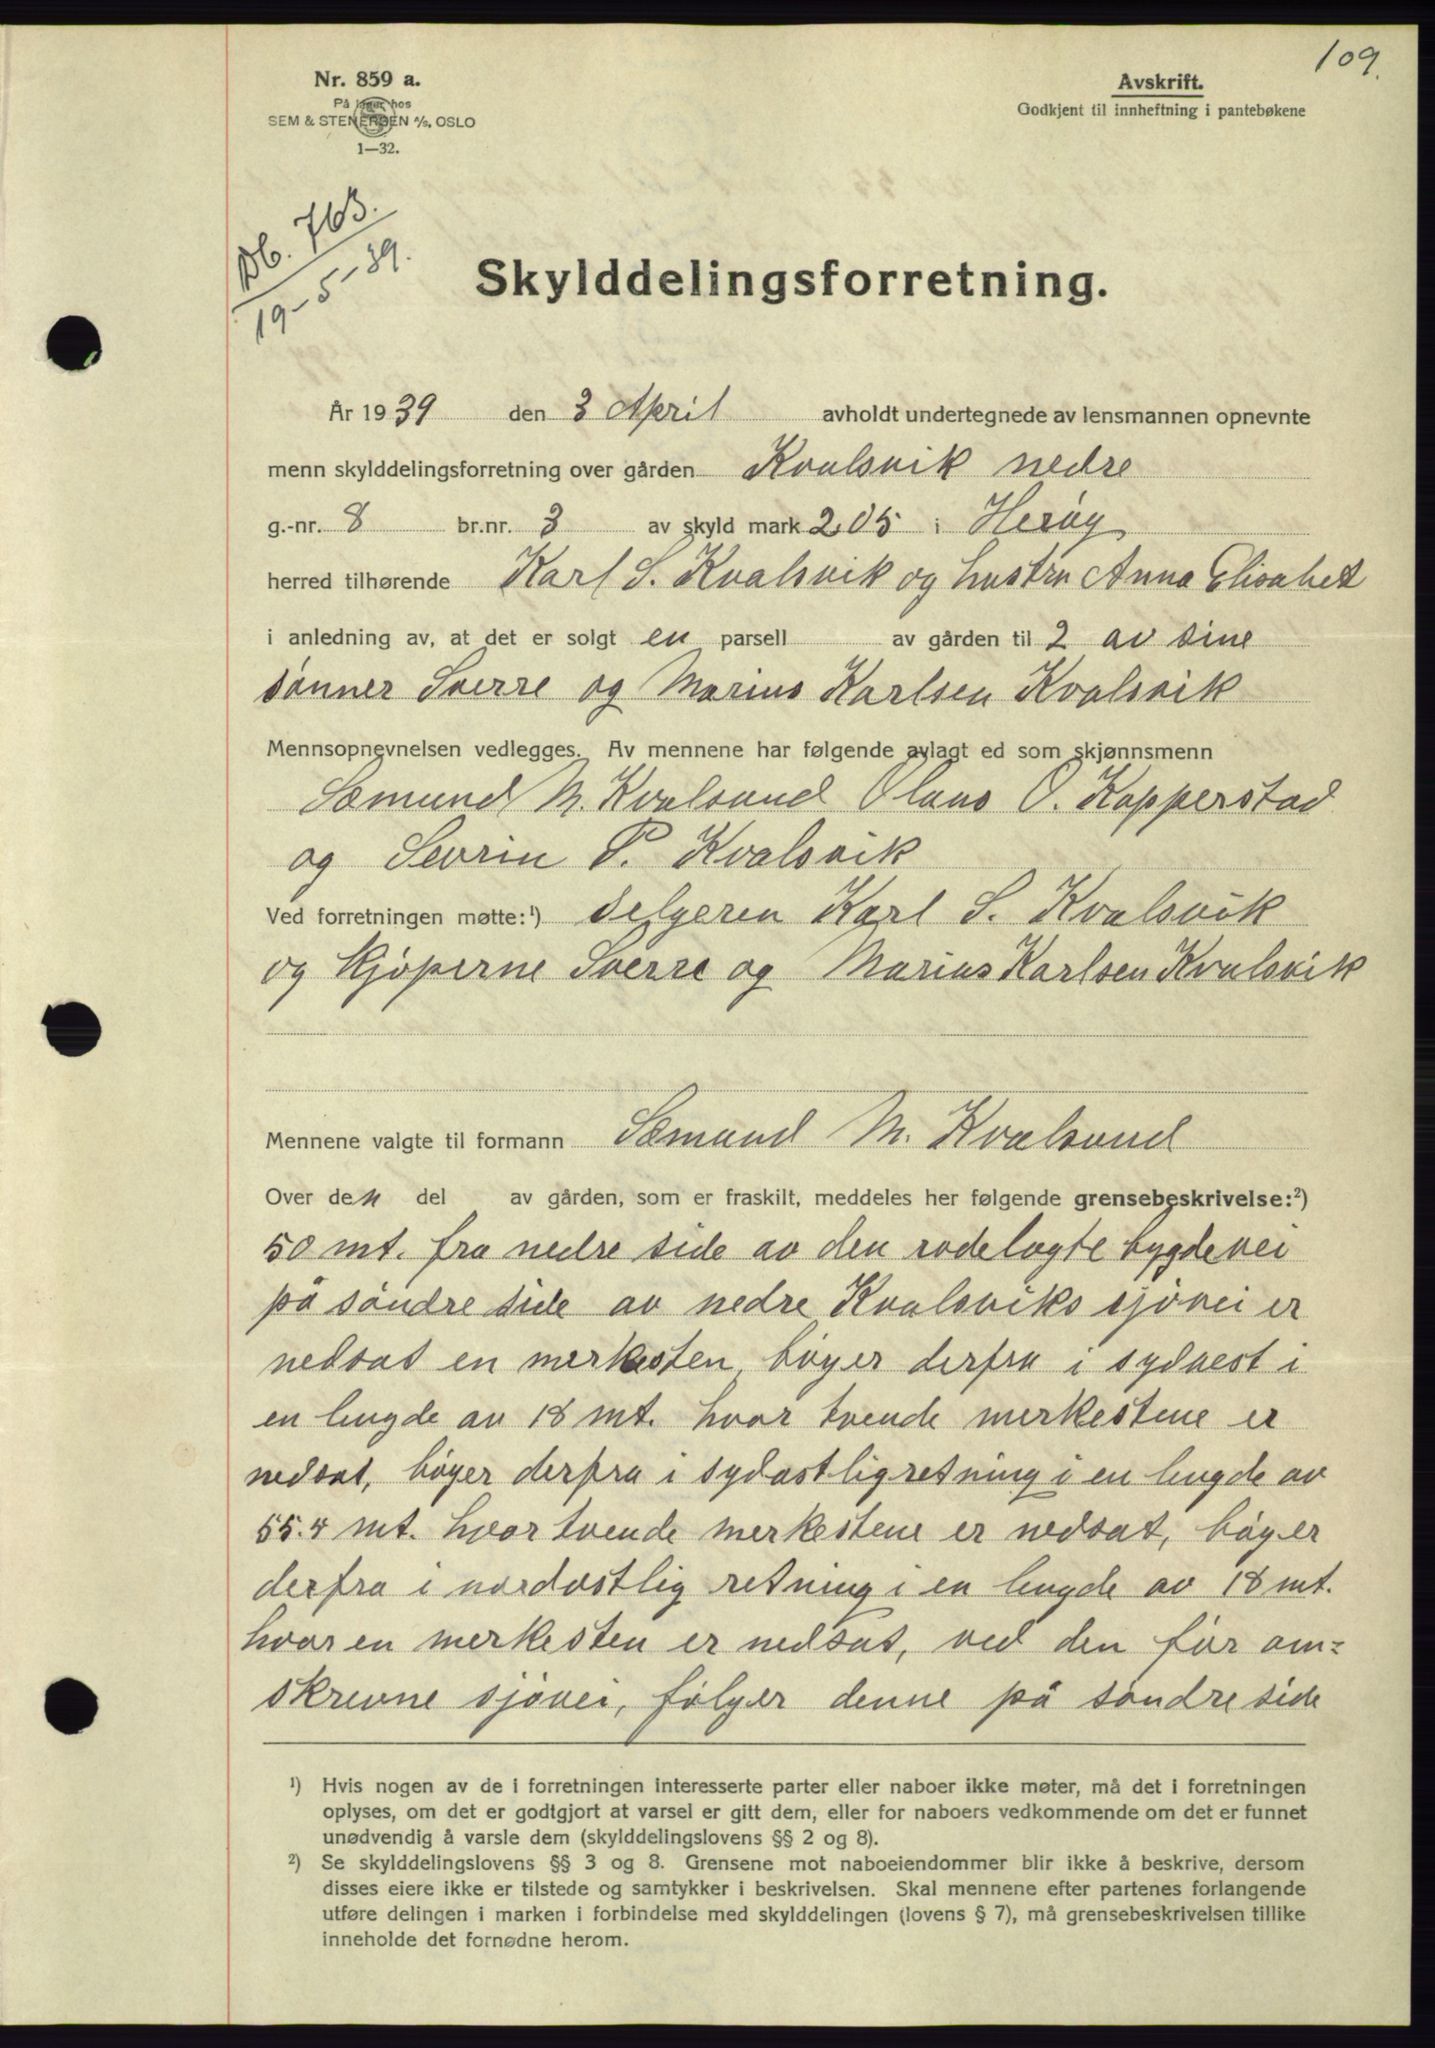 109.
Nr. 859 a.
På lager hos
SEM & STENERSEN A/S, OSLO
1—32.
Avskrift.
Godkjent til innheftning i pantebøkene
Db. 763.
19-5-39.
Skylddelingsforretning.
År 1939 den 3 April avholdt undertegnede av lensmannen opnevnte
menn skylddelingsforretning over gården Kvalsvik nedre
g.-nr. 8 br.nr. 3 av skyld mark 2,05 i Herøy
herred tilhørende Karl S. Kvalsvik og hustru Anna Elisabet
i anledning av, at det er solgt en parsell av gården til 2 av sine
sønner Sverre og Marius Karlsen Kvalsvik
Mennsopnevnelsen vedlegges. Av mennene har følgende avlagt ed som skjønnsmenn
Sæmund M. Kvalsund Olaus O. Kopperstad
og Sevrin P. Kvalsvik
Ved forretningen møtte:¹) selgeren Karl S. Kvalsvik
og kjøperne Sverre og Marius Karlsen Kvalsvik
Mennene valgte til formann Sæmund M. Kvalsund
Over den del av gården, som er fraskilt, meddeles her følgende grensebeskrivelse:²)
50 mt. fra nedre side av den rodelagte bygdevei
på søndre side av nedre Kvalsviks sjøvei er
nedsat en merkesten, bøyer derfra i sydvest i
en lengde av 18 mt. hvor tvende merkestene er
nedsat, bøyer derfra i sydøstlig retning i en lengde av
55.4 mt. hvor tvende merkestene er nedsat, bøyer
derfra i nordøstlig retning i en lengde av 18 mt.
hvor en merkesten er nedsat, ved den før om=
skrevne sjøvei, følger denne på søndre side
¹) Hvis nogen av de i forretningen interesserte parter eller naboer ikke møter, må det i forretningen
oplyses, om det er godtgjort at varsel er gitt dem, eller for naboers vedkommende om det er funnet
unødvendig å varsle dem (skylddelingslovens §§ 2 og 8).
²) Se skylddelingslovens §§ 3 og 8. Grensene mot naboeiendommer blir ikke å beskrive, dersom
disses eiere ikke er tilstede og samtykker i beskrivelsen. Skal mennene efter partenes forlangende
utføre delingen i marken i forbindelse med skylddelingen (lovens § 7), må grensebeskrivelsen tillike
inneholde det fornødne herom.